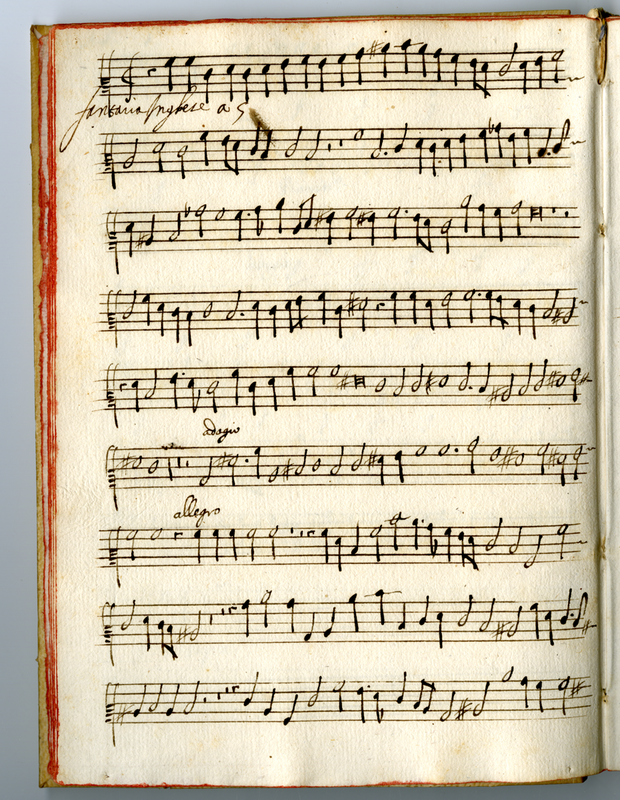 fantasia Inglese a 5
adagio
allegro